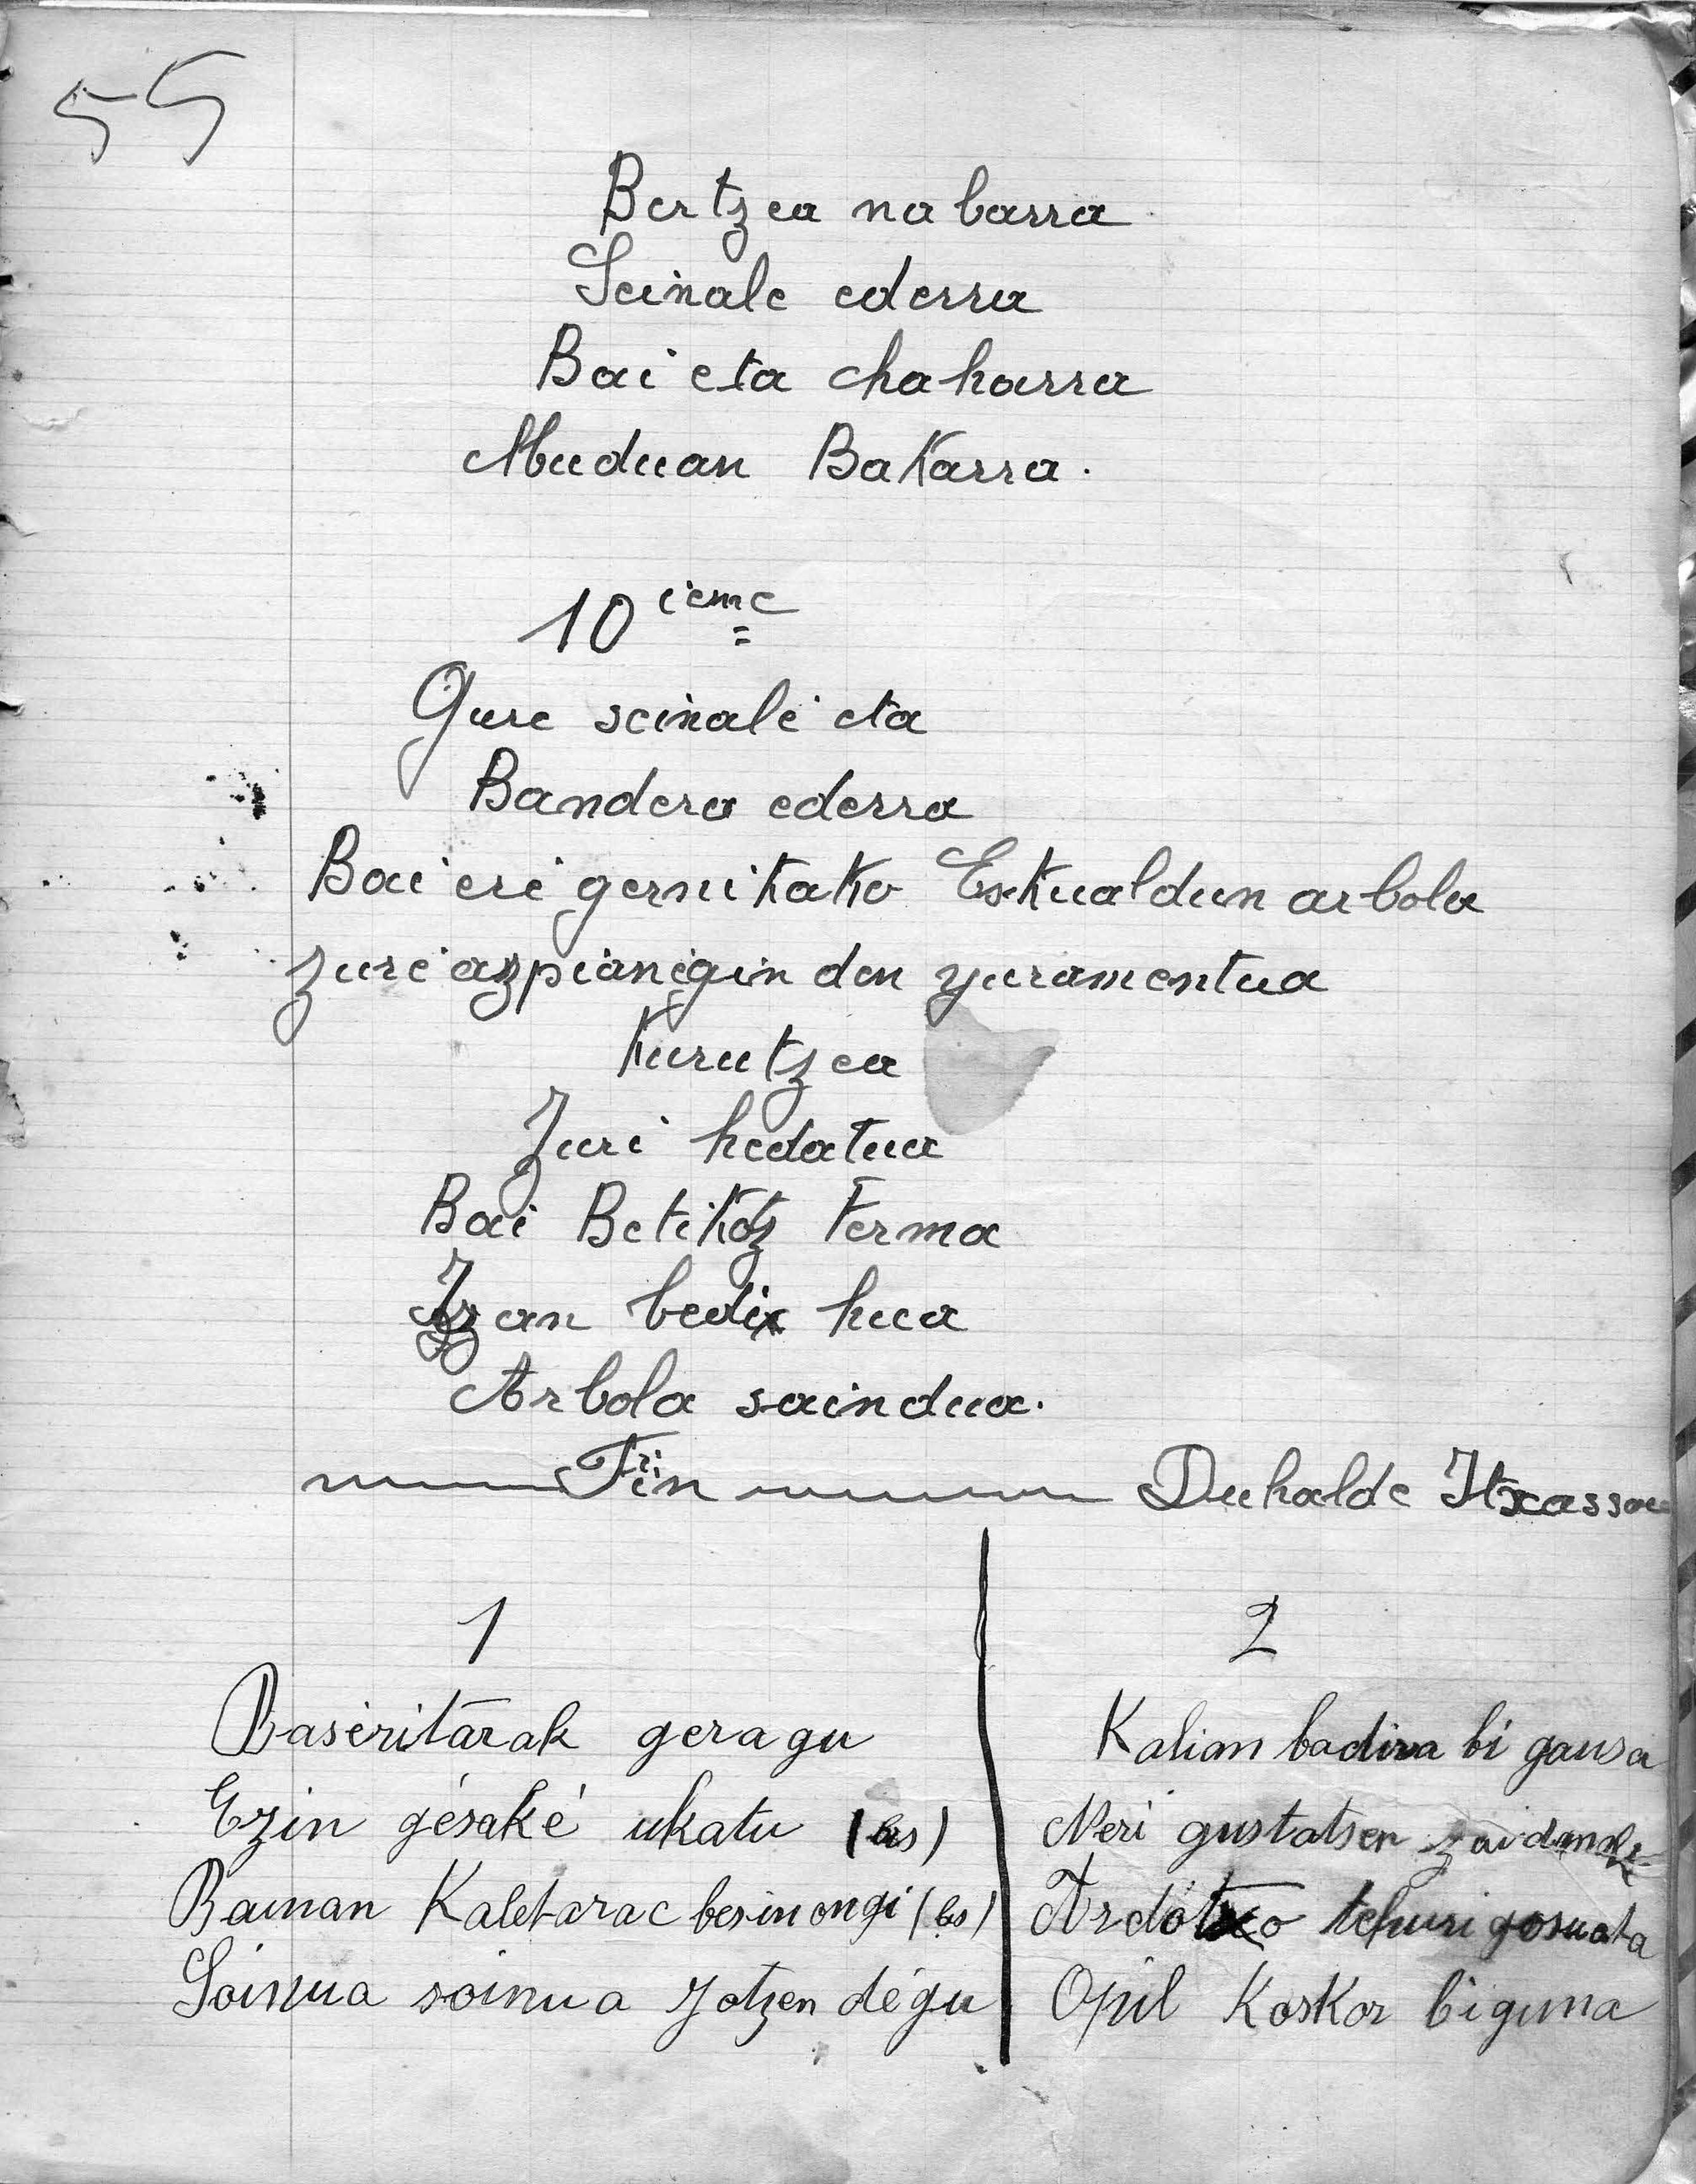 55
Bertzea nabarra
Seinale ederra
Bai eta chaharra
Muduan Bakarra.
10 ieme
Gure seinale eta
Bandera ederra
Bai ere gernikako Eskualdun arbola
zure azpian egin den yuramentua
Kurutzea
Zuri hedatua
Bai Betikotz Ferma
Izan bedi hea
Arbola saindua.
Fin Duhalde Itxassou
1
Baseritarak geragu
Ezin gésaké ukatu (bis)
Bainan Kaletarac besin ongi (bis)
Soinua soinua Jotzen dégu
2
Kalian badira bi gausa
Neri gustatsen
Ardotxo tchuri gosuata
Opil Koskor biguna